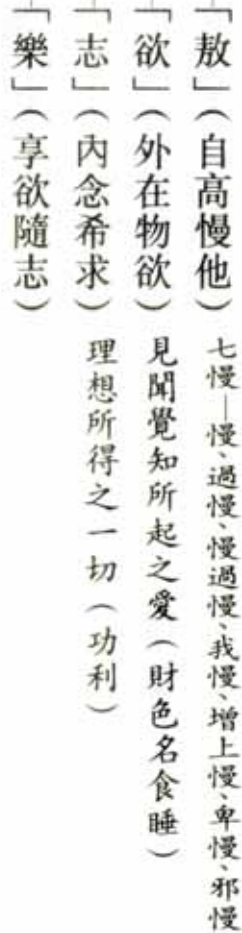 「敖」（自高慢他） 七慢—慢、過慢、慢過慢、我慢、增上慢、卑慢、邪慢
「欲」（外在物欲） 見聞覺知所起之愛（財色名食睡）
「志」（內念希求） 理想所得之一切（功利）
「樂」（享欲隨志）